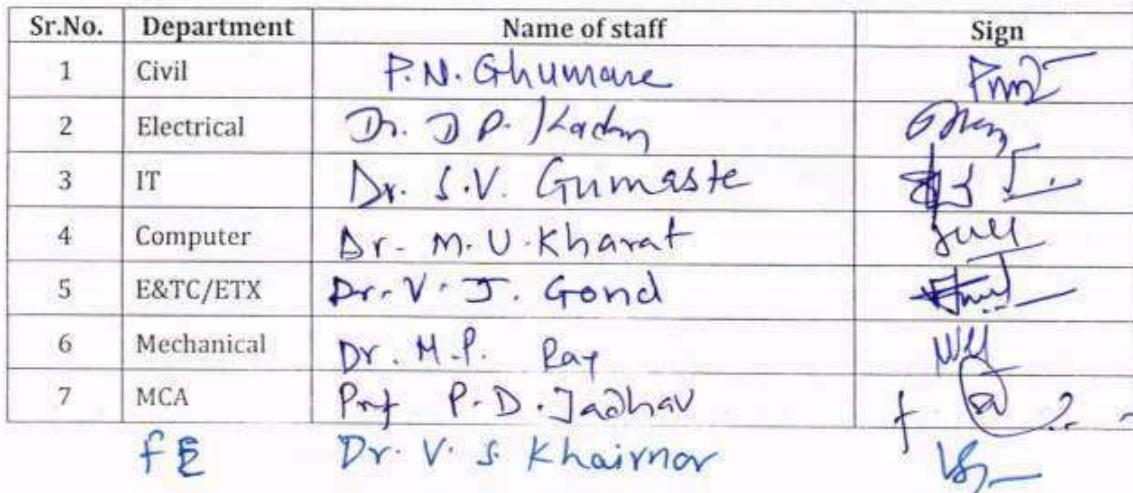 Sr.No. Department Name of staff Sign
1 Civil P.N. Ghumare
2 Electrical Dr. D P. Kadam
3 IT Dr. S.V. Gumaste
4 Computer Dr. M. U. Kharat
5 E&TC/ETX Dr. V. J. Gond
6 Mechanical Dr. M.P. Ray
7 MCA Prof P. D. Jadhav
FE Dr. V. S. Khairnar